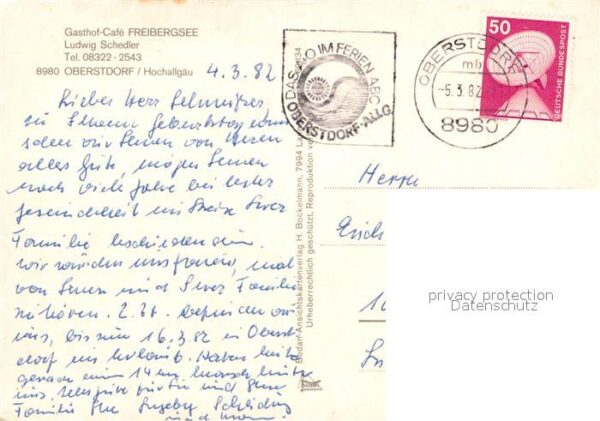 Gasthof-Café FREIBERGSEE
Ludwig Schedler
Tel. 08322 - 2543
8980 OBERSTDORF / Hochallgäu
4.3.82
Lieber Herr Schmitzer
zu Ihrem Geburtstag
wir Ihnen von Herzen
alles Gute, mögen Ihnen
noch viele Jahre bei bester
Gesundheit im Kreise Ihrer
Familie beschieden sein.
Wir würden uns freuen, mal
von Ihnen und Ihrer Familie
zu hören. Z.Zt. befinden wir
uns, bis zum 16.3.82 in Oberst
dorf im Urlaub. Haben heute
gerade einen 14 km Marsch hinter
uns. Alles Gute für Sie und Ihre
Familie Ihre Ingeborg
und Mann.
Bodan-Ansichtskartenverlag H. Bockelmann, 7994
Urheberrechtlich geschützt. Reproduktion
DAS O IM FERIEN ABC
OBERSTDORF-ALLG.
OBERSTDORF
mb
-5.3.82
8980
50
DEUTSCHE BUNDESPOST
Herrn
privacy protection
Datenschutz